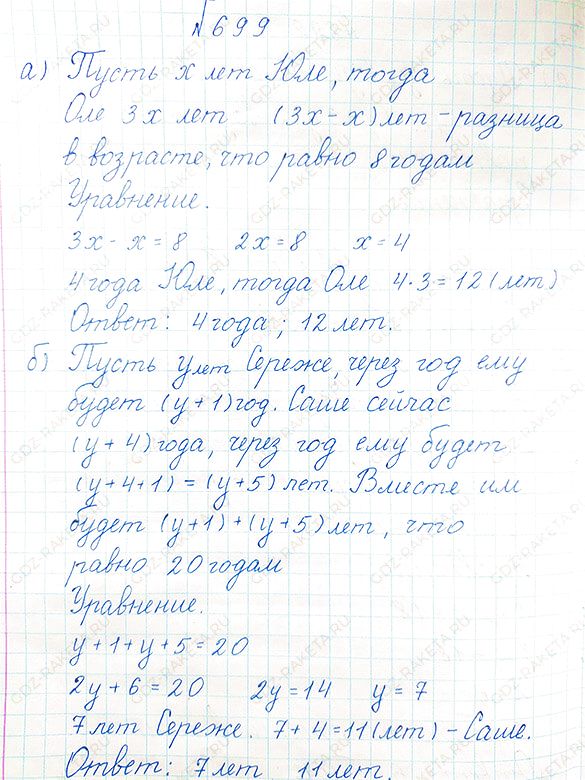 № 699
а) Пусть х лет Юле, тогда
Оле 3х лет (3х-х) лет - разница
в возрасте, что равно 8 годам
Уравнение.
3х - х = 8 2х = 8 х = 4
4 года Юле, тогда Оле 4·3 = 12 (лет)
Ответ: 4 года; 12 лет.
б) Пусть у лет Сереже, через год ему
будет (у+1) год. Саше сейчас
(у+4) года, через год ему будет
(у+4+1) = (у+5) лет. Вместе им
будет (у+1)+(у+5) лет, что
равно 20 годам
Уравнение.
у+1+у+5 = 20
2у+6 = 20 2у = 14 у = 7
7 лет Сереже. 7+4 = 11 (лет) - Саше.
Ответ: 7 лет 11 лет.
GDZ-RAKETA.RU